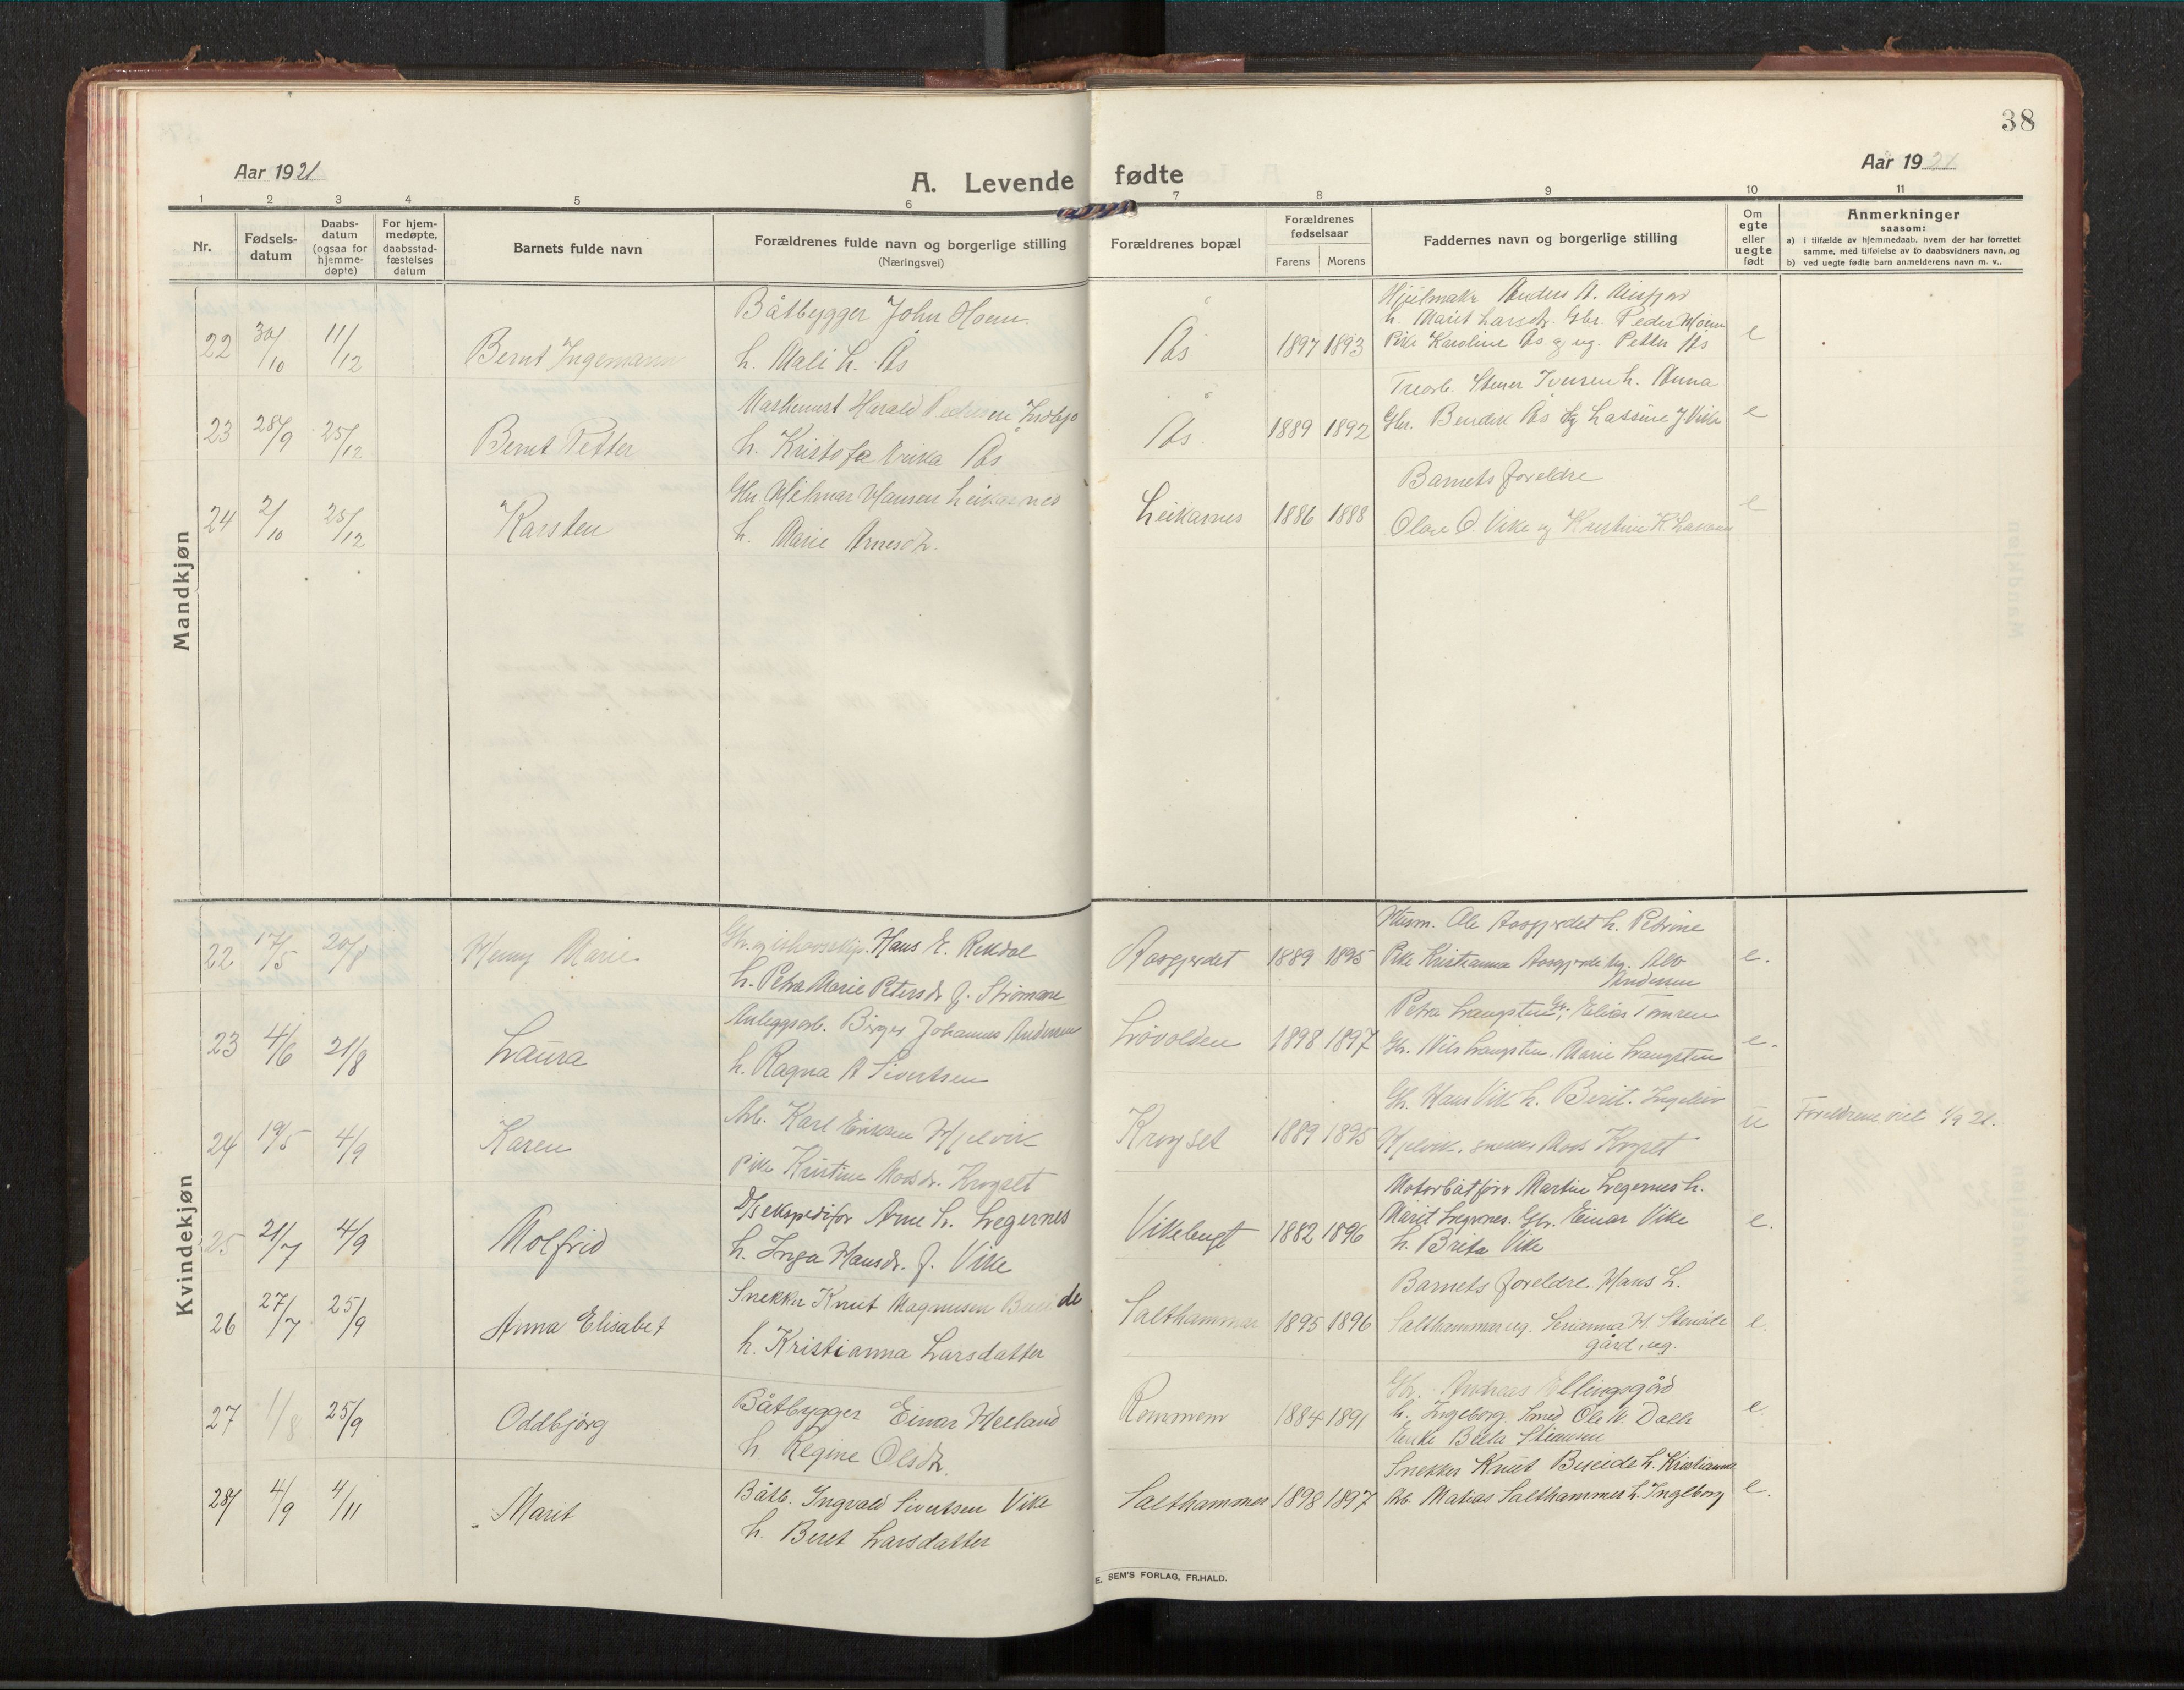 38
Aar 1921
A. Levende fødte
Aar 1921
1 2 3 4 5 6 7 8 9 10 11
Nr.
Fødsels-
datum
Daabs-
datum
(ogsaa for
hjemme-
døpte)
For hjem-
medøpte,
daabsstad-
fæstelses
datum
Barnets fulde navn
Forældrenes fulde navn og borgerlige stilling
(Næringsvei)
Forældrenes bopæl
Forældrenes
fødselsaar
Farens Morens
Faddernes navn og borgerlige stilling
Om
egte
eller
uegte
født
Anmerkninger
saasom:
a) i tilfælde av hjemmedaab, hvem der har forrettet
samme, med tilføielse av to daabsvidners navn, og
b) ved uegte fødte barn anmelderens navn m. v..
Mandkjøn
22 30/10 11/12 Bernt Ingemann
Båtbygger John Hoem
h. Mali L. Ås
Ås 1897 1893
Anders A.
h. Marit Larsdtr. Gbr. Peder Hoem
Pike Karoline Ås og ug. Petter Ås
e
23 28/9 25/12 Bernt Petter
Harald Pedersen
h. Kristofa Erika Ås
Ås 1889 1892
Treorb. Stener Iversen h. Anna
Gbr. Bendik Ås og Lassine J. Vike
e
24 2/10 25/12 Karsten
Gbr. Hilmar Hansen Leikarnes
h. Marie Arnesdtr.
Leikarnes 1886 1888
Barnets foreldre
Olave O. Vike og Kristine K.
e
Kvindekjøn
22 17/5 20/8 Henny Marie
Hans E. Rekdal
h. Petra Marie Petersdr f. Strømme
Aasgjerdet 1889 1895
Husm. Ole Aasgjerdet h. Petrine
Pike Kristianna Aasgjerde ug. Alv
Andersen
e.
23 4/6 21/8 Laura
Anleggsarb. Birger Johannes Andersen
h. Ragna A Sivertsen
Løvolden 1898 1897
Petra Langsten Gbr. Elias Tomren
Gbr. Nils Langsten. Marie Langsten
e.
24 19/5 4/9 Karen
Arb. Karl Eriksen Hjelvik
pike Kristine Madsdr. Krogset
Krogset 1889 1895
Gbr. Hans Vik h. Berit. Ingeleiv
Hjelvik, snekker Mads Krogset
u Foreldrene viet 1/9 21.
25 21/7 4/9 Molfrid
D/s ekspeditør Arne L. Legernes
h. Inga Hansdr. f. Vike
Vikebugt 1882 1896
Motorbåtfører Martin Legernes h.
Marit Legernes. Gbr. Einar Vike
h. Brita Vike
e.
26 27/7 25/9 Anna Elisabet
Snekker Knut Magnusen
h. Kristianna Larsdatter
Salthammer 1895 1896
Barnets foreldre. Hans L.
Salthammer ug. Serianna H.
gård, ug.
e.
27 1/8 25/9 Oddbjörg
Båtbygger Einar Helland
h. Regine Olsdtr.
Rommem 1884 1891
Gbr. Andreas Ellingsgård
h. Ingeborg. Smed Ole N. Dalh
Enke Beita
e.
28 4/9 4/11 Marit
Båtb. Ingvald Sivertsen Vike
h. Beret Larsdatter
Salthammer 1898 1897
Snekker Knut Buseide h. Kristianna
Arb. Matias Salthammer h. Ingeborg
e.
E. SEM'S FORLAG, FR.HALD.